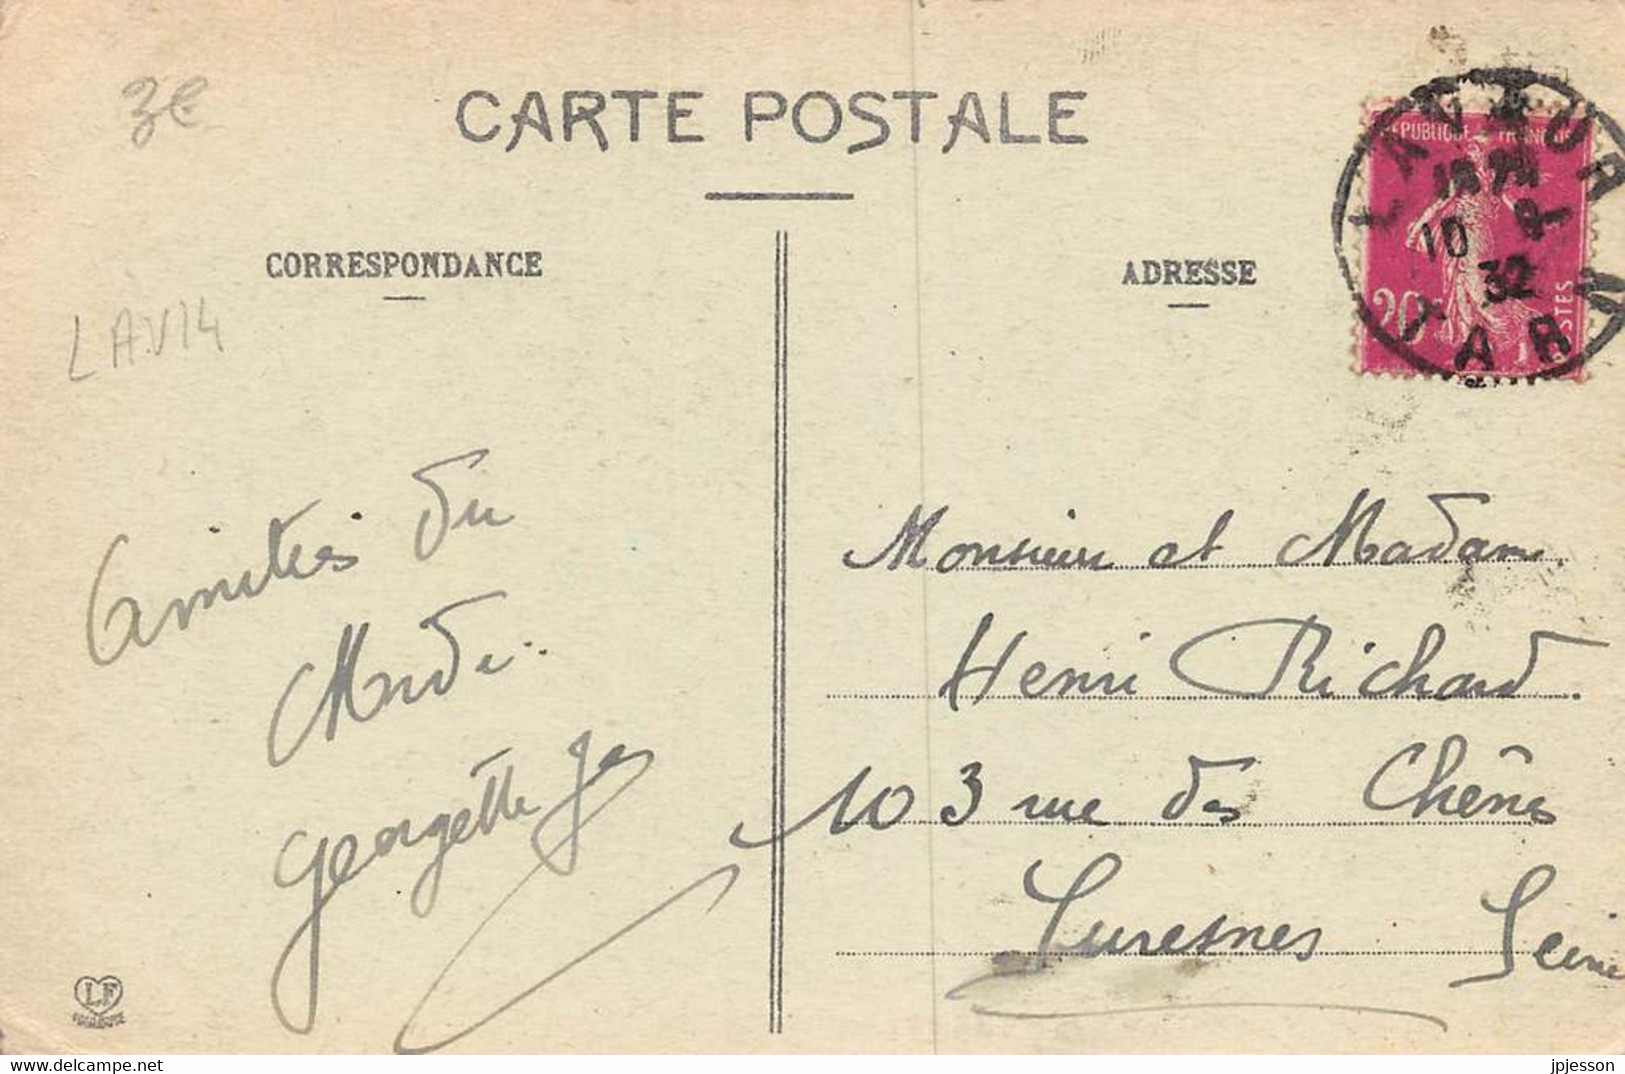 3€
CARTE POSTALE
CORRESPONDANCE
ADRESSE
LAV14
REPUBLIQUE FRANÇAISE
20
POSTES
LAVAUR
10
32
TARN
Amitiés du
Midi..
Georgette
Monsieur et Madame
Henri Richard.
103 rue des Chênes
Suresnes Seine
LF
TOULOUSE
www.delcampe.net
jpjesson